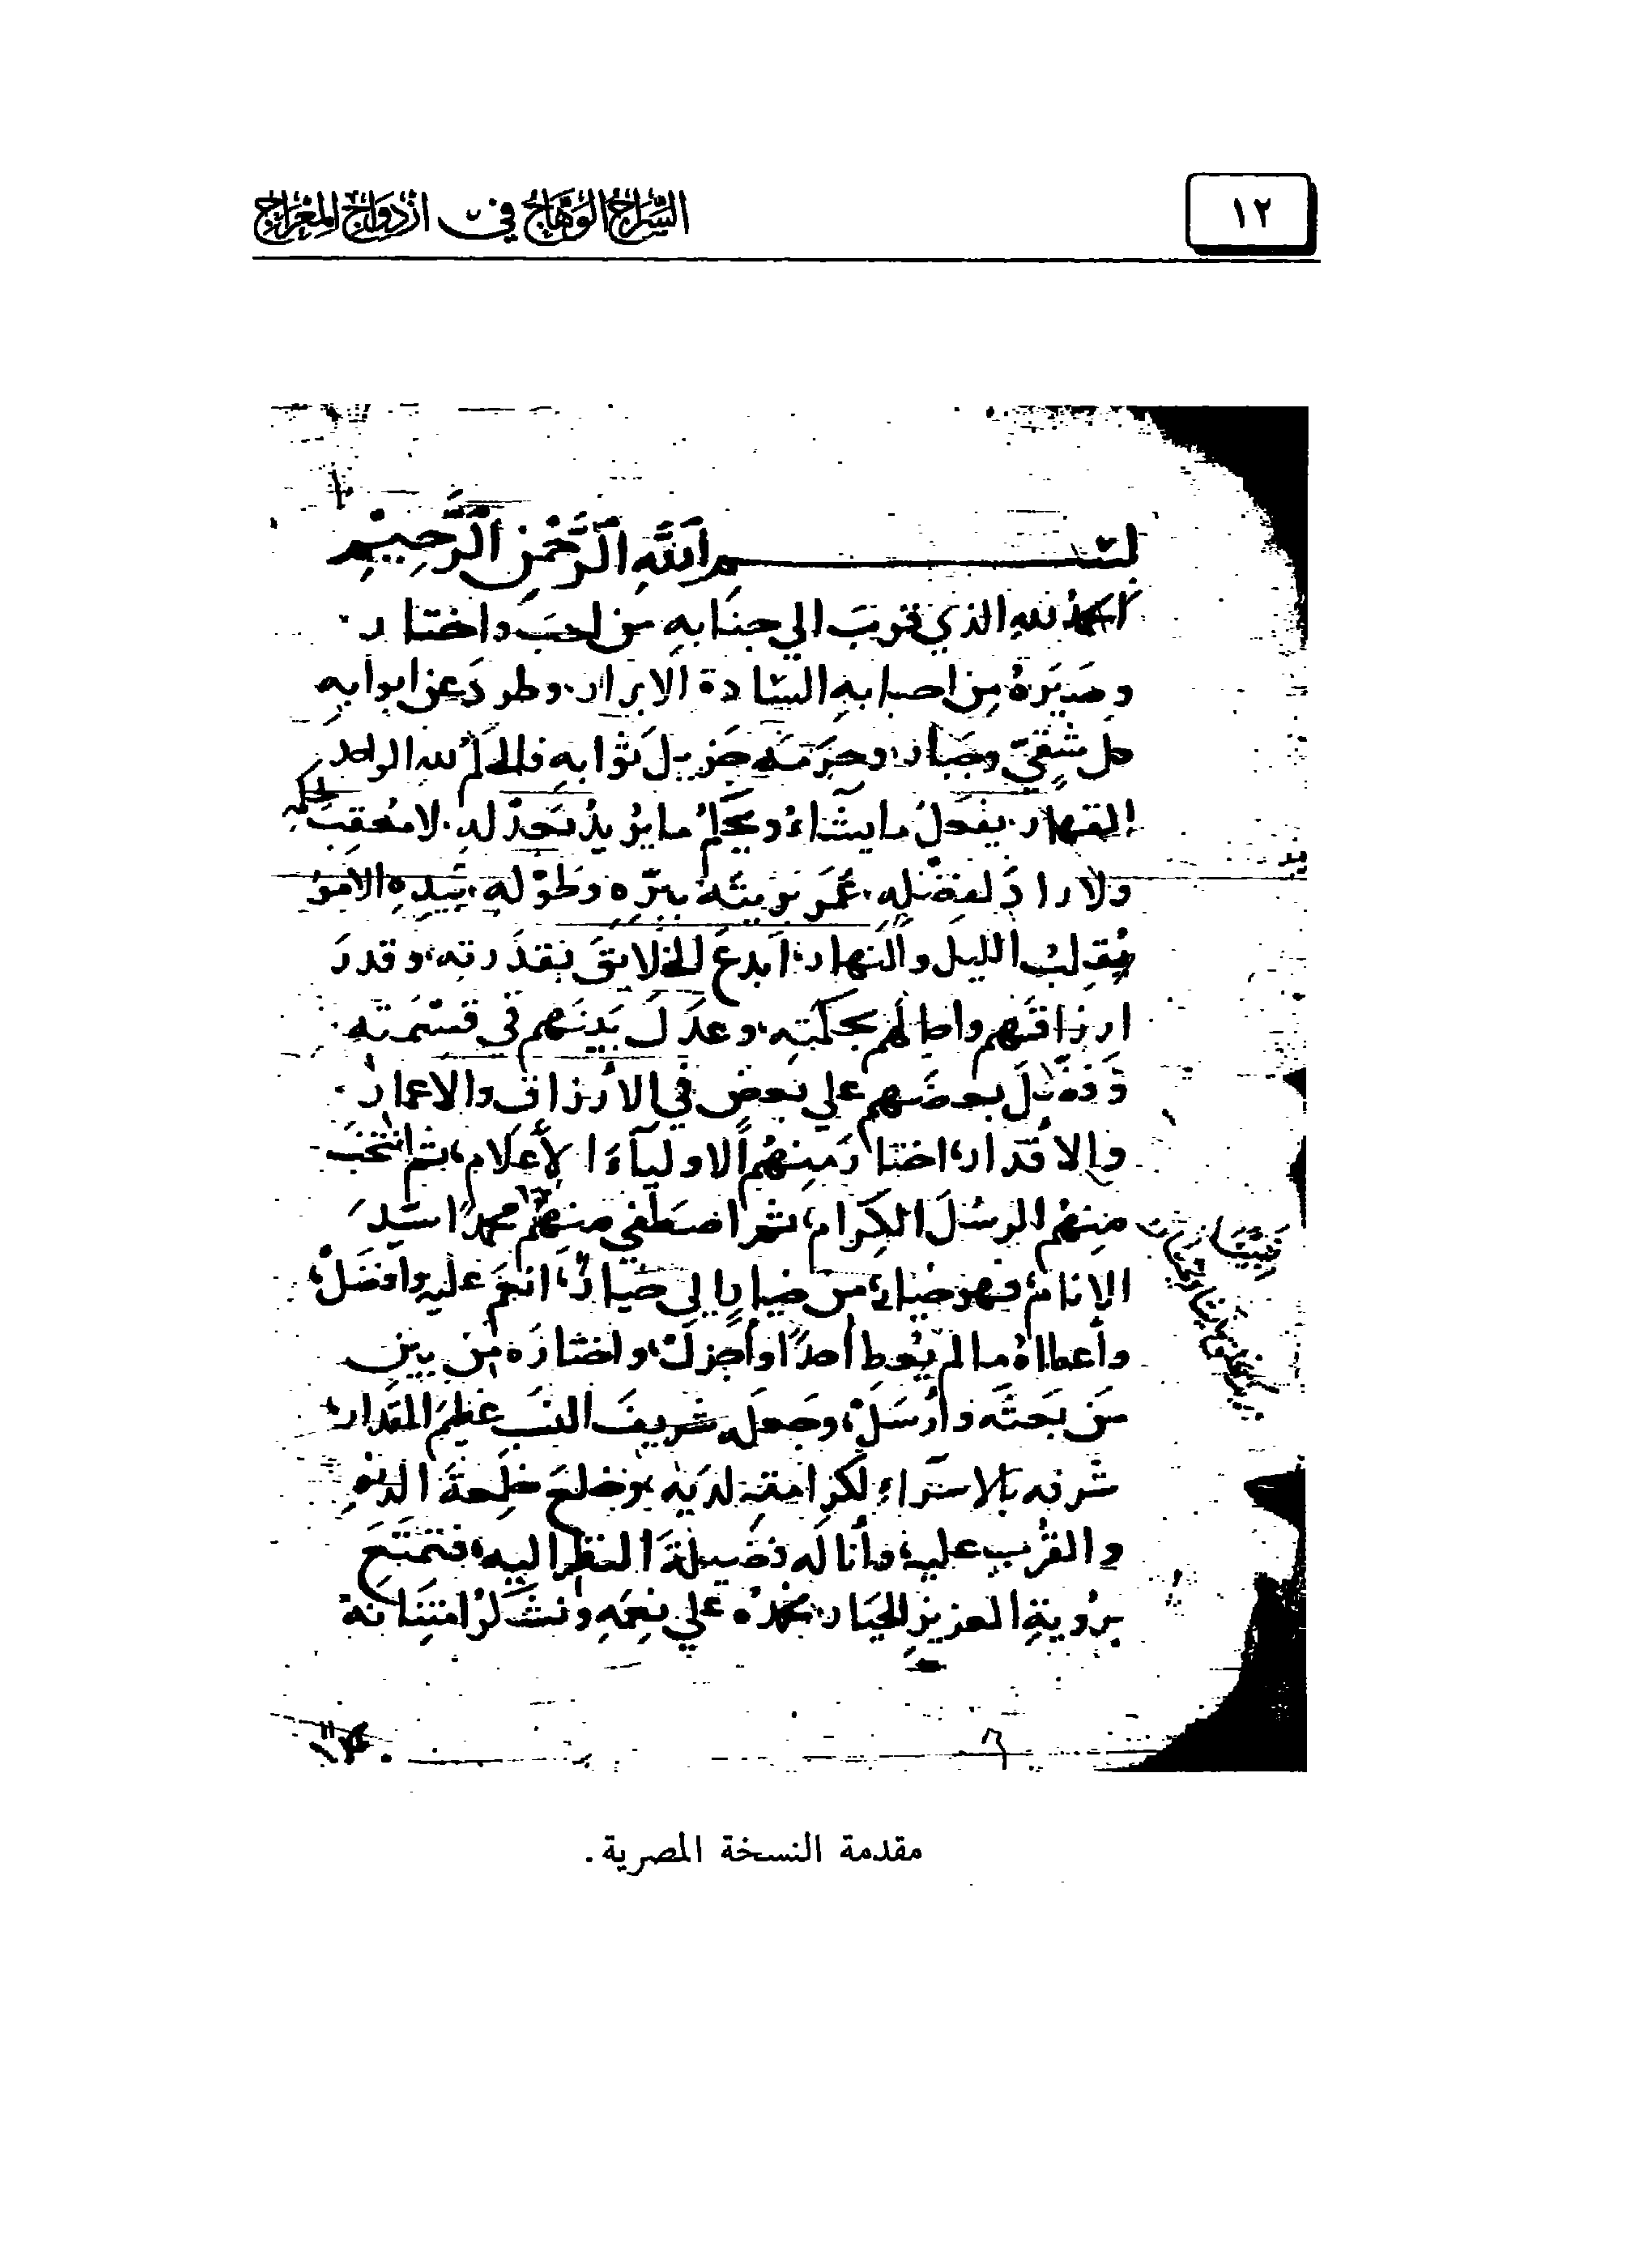 السراج الوهاج في ازدواج المعراج
١٢
بسم الله الرحمن الرحيم
الحمد لله الذي قرب الي جنابه من احب واختار
وصيره من احبابه السادة الابرار وطرد عن ابوابه
كل شقي وجبار وحرمه جزيل ثوابه فالحكم لله الواحد
القهار يفعل ما يشاء ويحكم ما يريد بعدله لا معقب لحكمه
ولا راد لفضله عمر بريته ببره وطوله بيده الامور
يقلب الليل والنهار ابدع الخلايق بقدرته وقدر
ارزاقهم واجالهم بحكمته وعدل بينهم في قسمته
وفضل بعضهم علي بعض في الارزاق والاعمار
والاقدار اختار منهم الاولياء الاعلام ثم انتخب
منهم الرسل الكرام ثم اصطفي منهم محمدا سيد
الانام فهو خيار من خيار الي خيار انعم عليه وافضل
وأعطاه ما لم يعط أحدا وأجزل واختاره من بين
من بعثه وأرسل وجعله شريف النسب عظيم المقدار
شرفه بالاسراء لكرامته لديه وخلع خلعة الدنو
والقرب عليه وأناله فضيلة النظر اليه فتمتع
برؤية العزيز الجبار نحمده علي نعمه ونشكر امتنانه
مقدمة النسخة المصرية.